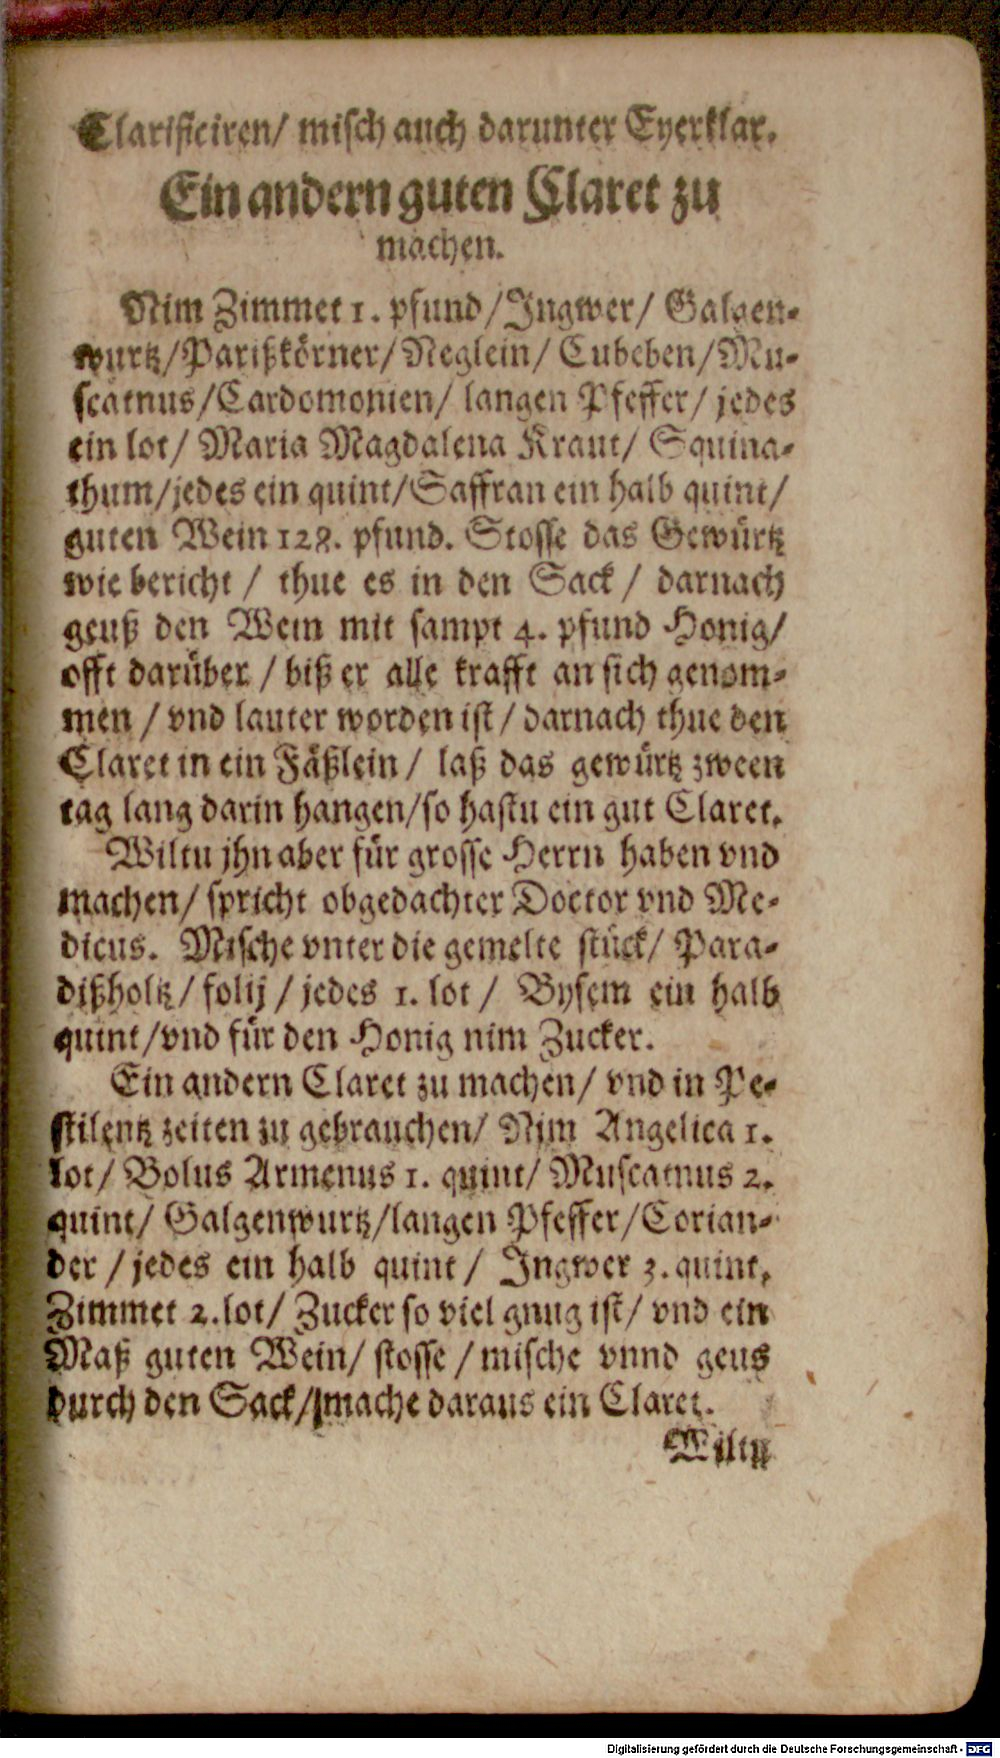 Clarificiren/ misch auch darunter Eyerklar.
Ein andern guten Claret zu
machen.
Nim Zimmet 1. pfund/Ingwer/ Galgen-
wurtz/Parißkörner/Neglein/ Cubeben/Mu-
scatnus/Cardomonien/ langen Pfeffer/ jedes
ein lot/ Maria Magdalena Kraut/ Squina-
thum/jedes ein quint/Saffran ein halb quint/
guten Wein 128. pfund. Stosse das Gewürtz
wie bericht / thue es in den Sack / darnach
geuß den Wein mit sampt 4. pfund Honig/
offt darüber / biß er alle krafft an sich genom-
men / vnd lauter worden ist / darnach thue den
Claret in ein Fäßlein / laß das gewürtz zween
tag lang darin hangen/so hastu ein gut Claret.
Wiltu jhn aber für grosse Herrn haben vnd
machen/ spricht obgedachter Doctor vnd Me-
dicus. Mische vnter die gemelte stück/ Para-
dißholtz / folij / jedes 1. lot / Bysem ein halb
quint/vnd für den Honig nim Zucker.
Ein andern Claret zu machen/ vnd in Pe-
stilentz zeiten zu gebrauchen/ Nim Angelica 1.
lot/ Bolus Armenus 1. quint/ Muscatnus 2.
quint/ Galgenwurtz/langen Pfeffer/Corian-
der / jedes ein halb quint / Ingwer 3. quint,
Zimmet 2. lot/ Zucker so viel gnug ist/ vnd ein
Maß guten Wein/ stosse / mische vnnd geus
durch den Sack/mache daraus ein Claret.
Wiltu
Digitalisierung gefördert durch die Deutsche Forschungsgemeinschaft - DFG